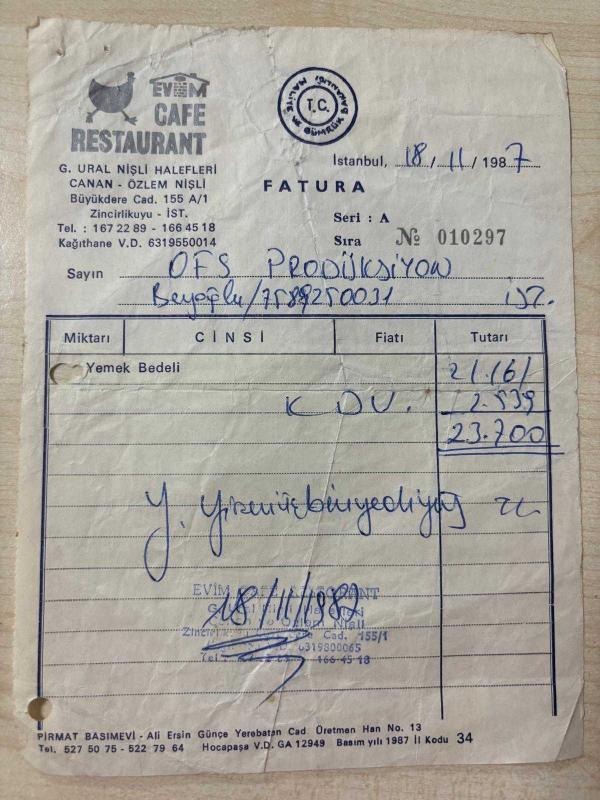 EVİM
CAFE
RESTAURANT
G. URAL NİŞLİ HALEFLERİ
CANAN - ÖZLEM NİŞLİ
Büyükdere Cad. 155 A/1
Zincirlikuyu - İST.
Tel. : 167 22 89 - 166 45 18
Kağıthane V.D. 6319550014
T.C.
MALİYE VE GÜMRÜK BAKANLIĞI
İstanbul, 18 / 11 / 1987
FATURA
Seri : A
Sıra № 010297
Sayın OFS PRODÜKSİYON
Beyoğlu / 7589250031 İST.
Miktarı CİNSİ Fiatı Tutarı
Yemek Bedeli 21.161
KDV. 2.539
23.700
Y. Yirmiüçbinyediyüz TL
EVİM CAFE RESTORANT
18/11/1987
Özlem Nişli
Cad. 155/1
6319800065
Tel 166 45 18
PİRMAT BASIMEVİ - Ali Ersin Günçe Yerebatan Cad. Üretmen Han No. 13
Tel. 527 50 75 - 522 79 64 Hocapaşa V.D. GA 12949 Basım yılı 1987 İl Kodu 34